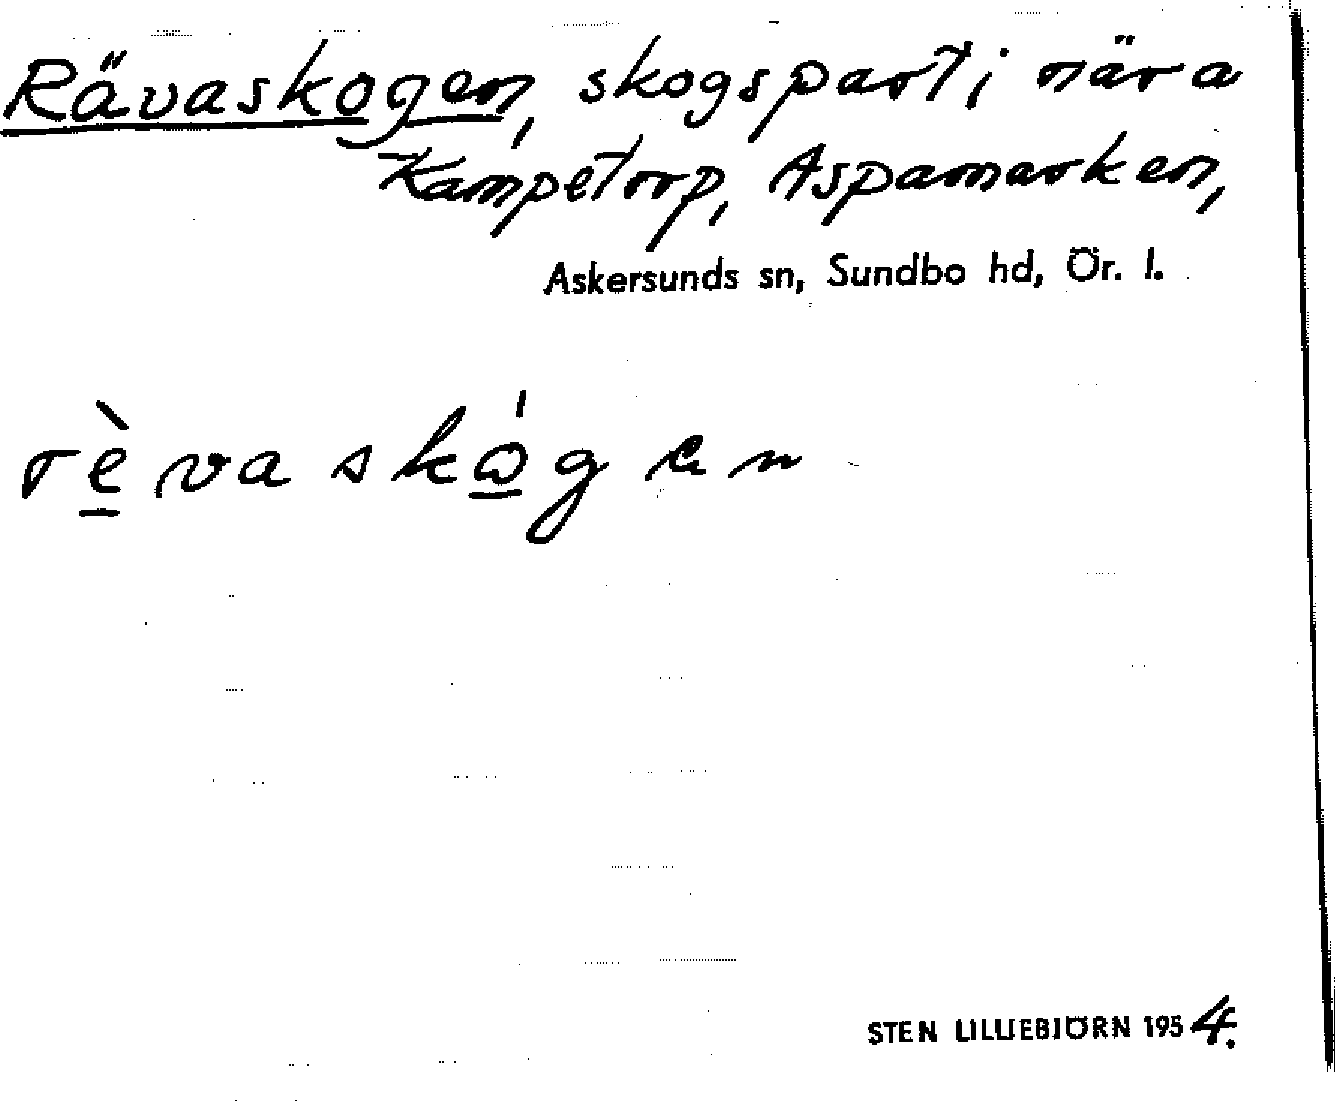 Rävaskogen, skogsparti nära
Kampetorp, Aspamarken,
Askersunds sn, Sundbo hd, Ör. l.
rèvaskógen
STEN LILLIEBJÖRN 1954.